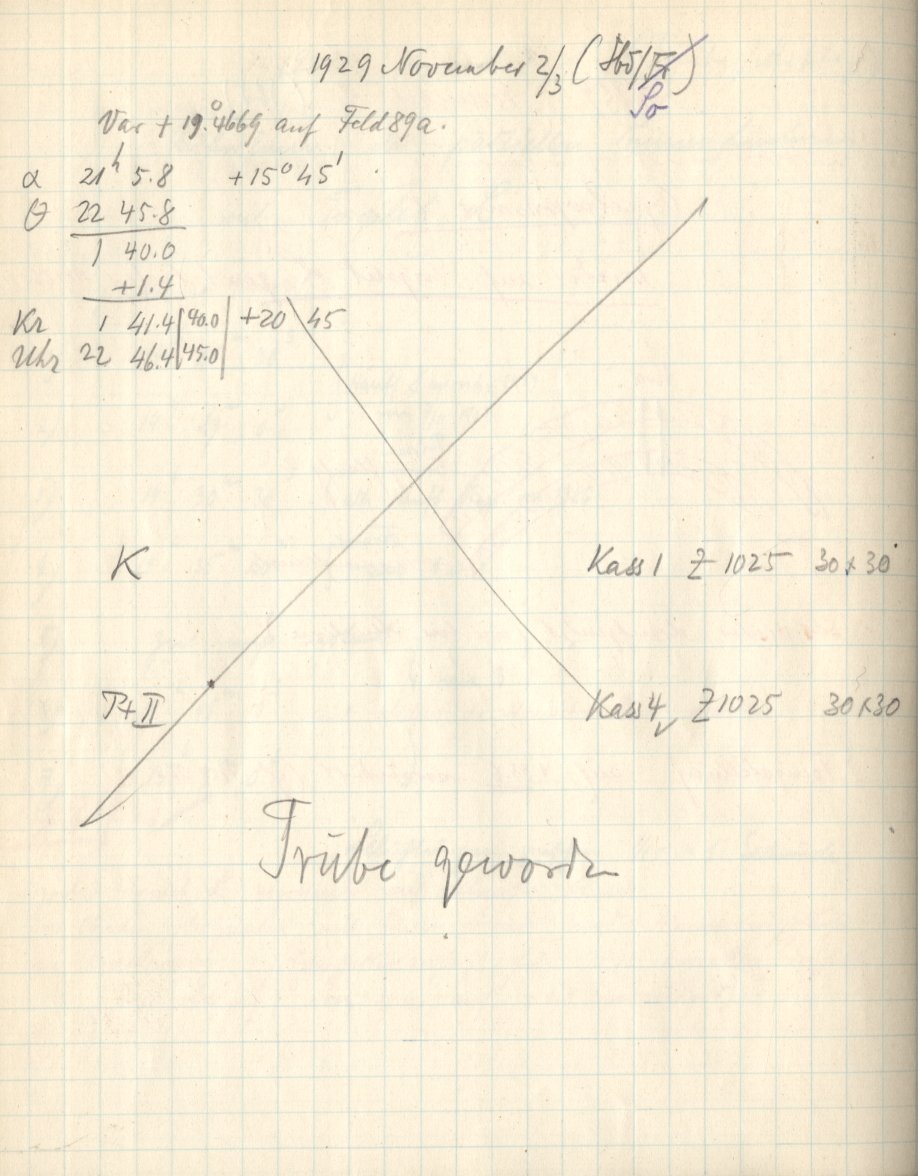 1929 November 2/3 (Sbd/Fr)
So
Var + 19°.4669 auf Feld 89a.
α 21h 5.8 +15° 45'
θ 22 45.8
1 40.0
+1.4
Kr 1 41.4 | 40.0 | +20 45
Uhr 22 46.4 | 45.0 |
K Kass 1 Z 1025 30 x 30
T+II Kass 4 Z 1025 30 x 30
Trübe geworden